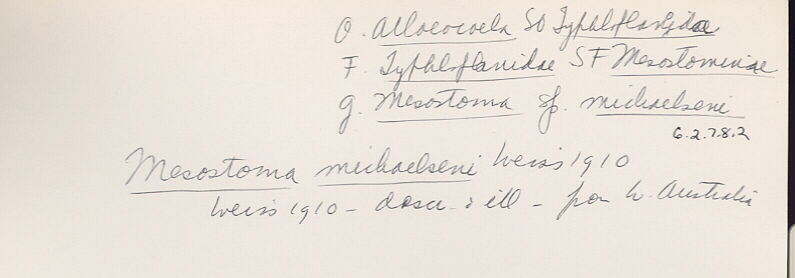 O. Alloeocoela SO Typhloplanidae
F. Typhloplanidae SF Mesostominae
g. Mesostoma sp. michaelseni
6.2.7.8.2
Mesostoma michaelseni Weiss 1910
Weiss 1910 - descr. & ill - from W. Australia